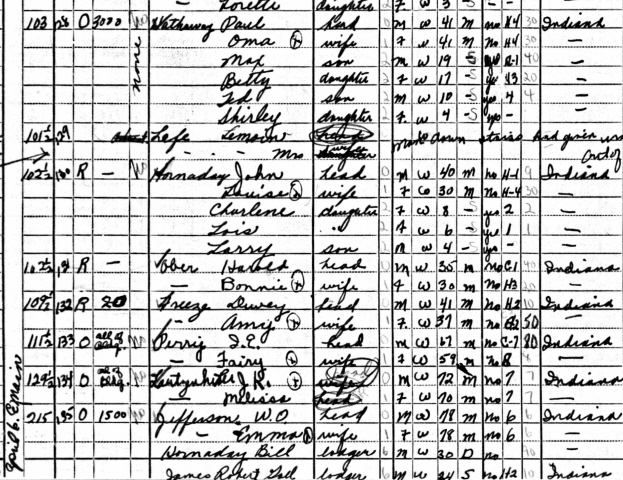 Loretta daughter 2 F W 3 S -
103 O 3000 Hathaway Paul head 0 M W 41 M no H4 30 Indiana
Oma wife 1 F W 41 M no H4 30 —
none Max son 2 M W 19 S 40 —
Betty daughter 2 F W 17 S yes H3 20 —
Ted son 2 M W 10 S yes 4 4 —
Shirley daughter 2 F W 4 S yes -
101½ Lefe made down stairs had given
- - Mrs
102½ 130 R — Hornaday John head 0 M W 40 M no H-1 9 Indiana
Louise wife 1 F W 30 M no H-4 30 —
Charlene daughter 2 F W 8 S yes 2 2 —
Lois " 2 F W 6 S yes 1 1 —
Larry son 2 M W 4 S yes - —
102½ 131 R — Ober Harold head 0 M W 35 M no C-1 Indiana
— Bonnie wife 1 F W 30 M no H3 —
109½ 132 R 20 Freeze Dewey head 0 M W 41 M no H2 10 Indiana
— Amy wife 1 F W 37 M no 50 —
111½ 133 O Perrig head 0 M W 67 M no C-7 80 Indiana
— Fairy wife 1 F W 59 M no 8 —
124½ 134 O J.R. 0 M W 72 M no 7 Indiana
Melissa head 1 F W 70 M no 7 7 —
215 135 O 1500 Jefferson W.O head 0 M W 78 M no 6 6 Indiana
— Emma wife 1 F W 78 M no 6 —
Hornaday Bill lodger 6 M W 30 D no —
James Robert lodger 6 M W 24 S no H2 Indiana
April 6. E main